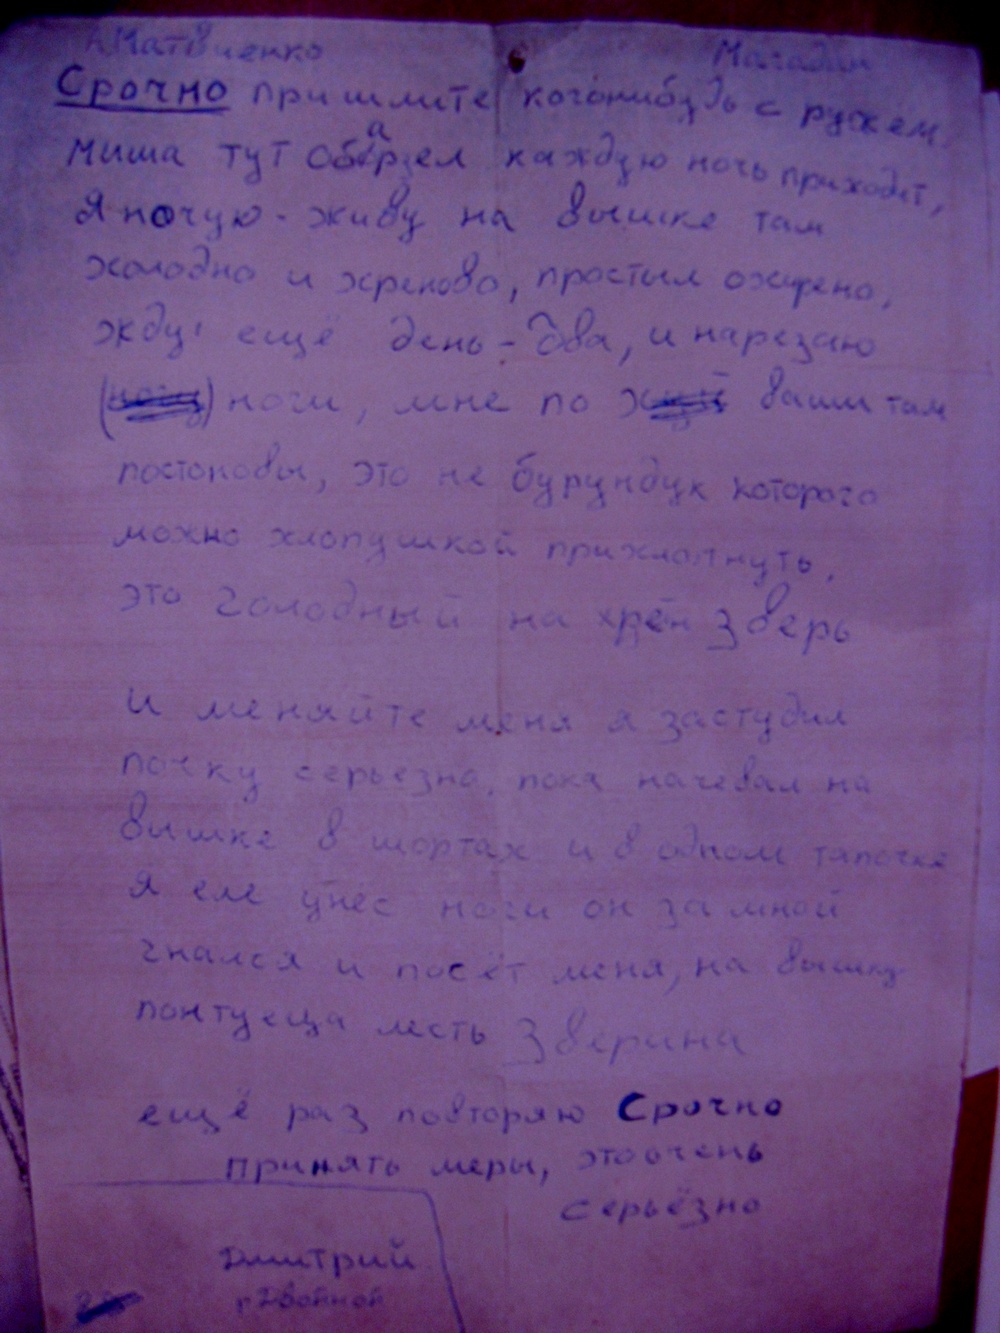 А Матвиенко Магадан
Срочно пришлите когонибудь с ружём,
Миша тут оборзел каждую ночь приходит,
Я ночую - живу на вышке там
холодно и хреново, простыл охрено,
жду ещё день - два, и нарезаю
ноги, мне по ваши там
постоновы, это не бурундук которого
можно хлопушкой прихлопнуть,
это голодный на хрен зверь
И меняйте меня я застудил
почку серьезно, пока начевал на
вышке в шортах и в одном тапочке
Я еле унёс ноги он за мной
гнался и посёт меня, на вышку
понтуеца месть Зверина
ещё раз повторяю Срочно
принять меры, это очень
серьёзно
Дмитрий
р Двойной